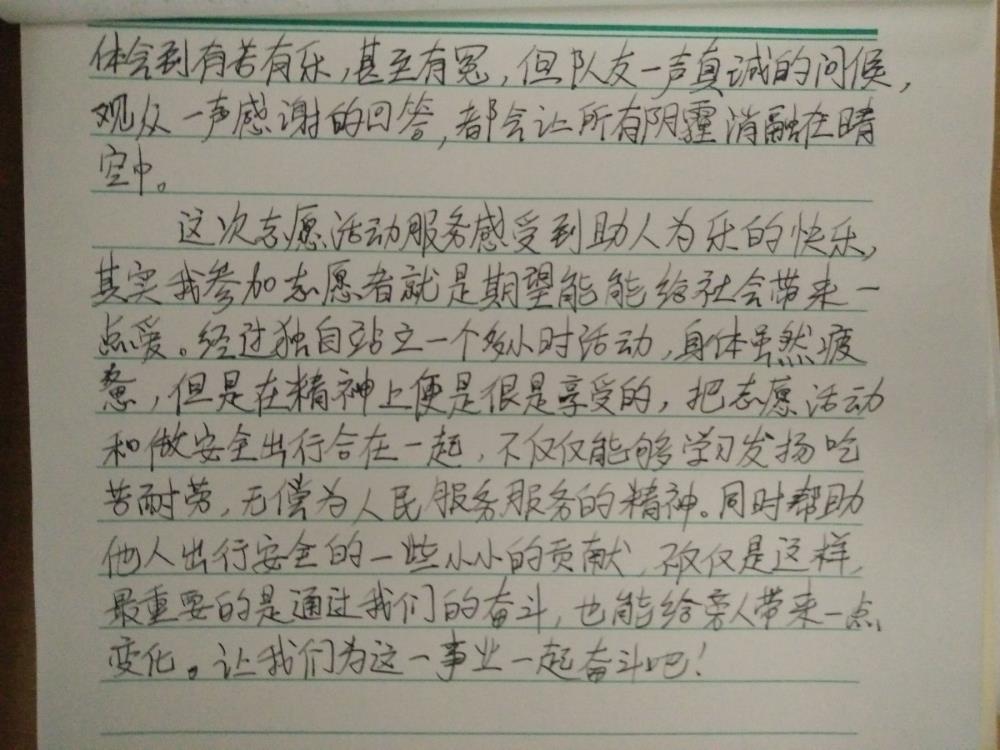 体会到有苦有乐，甚至有冤，但队友一声真诚的问候，
观众一声感谢的回答，都会让所有阴霾消融在晴
空中。
这次志愿活动服务感受到助人为乐的快乐，
其实我参加志愿者就是期望能能给社会带来一
点爱。经过独自站立一个多小时活动，身体虽然疲
惫，但是在精神上便是很是享受的，把志愿活动
和做安全出行合在一起，不仅仅能够学习发扬吃
苦耐劳，无偿为人民服务服务的精神。同时帮助
他人出行安全的一些小小的贡献，不仅仅是这样，
最重要的是通过我们的奋斗，也能给旁人带来一点
变化。让我们为这一事业一起奋斗吧！